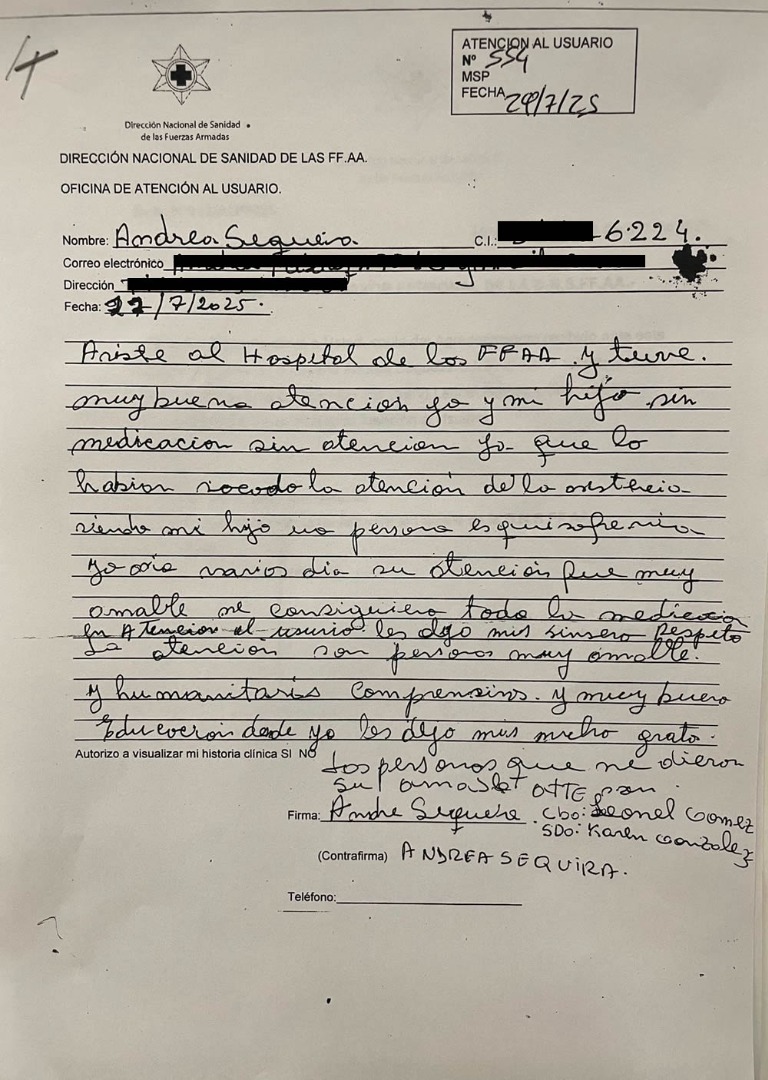 ATENCION AL USUARIO
Nº 554
MSP
FECHA 29/7/25
Dirección Nacional de Sanidad
de las Fuerzas Armadas
DIRECCIÓN NACIONAL DE SANIDAD DE LAS FF.AA.
OFICINA DE ATENCIÓN AL USUARIO.
Nombre: Andrea Sequeira C.I.: 6.224.
Correo electrónico
Dirección
Fecha: 27/7/2025.
al Hospital de los FFAA y tuve.
muy buena atencion yo y mi hijo sin
medicacion sin atencion ya que lo
habian sacado la atención de la asistencia
siendo mi hijo una persona esquisofrenia
varios dia su atención que muy
amable me consiguiero toda la medicacion
En Atencion al usurio les dejo mis sinsero Respeto
La atencion son personas muy amable.
y humanitaris comprensivos. y muy buena
Educación desde yo les dejo mis mucho grato.
Autorizo a visualizar mi historia clínica SI NO
Las personas que me dieron
su amable atte son
Firma: Andre Sequeira. Cbo: Leonel Gomez
SDo: Karen Gonzalez
(Contrafirma) ANDREA SEQUIRA.
Teléfono: